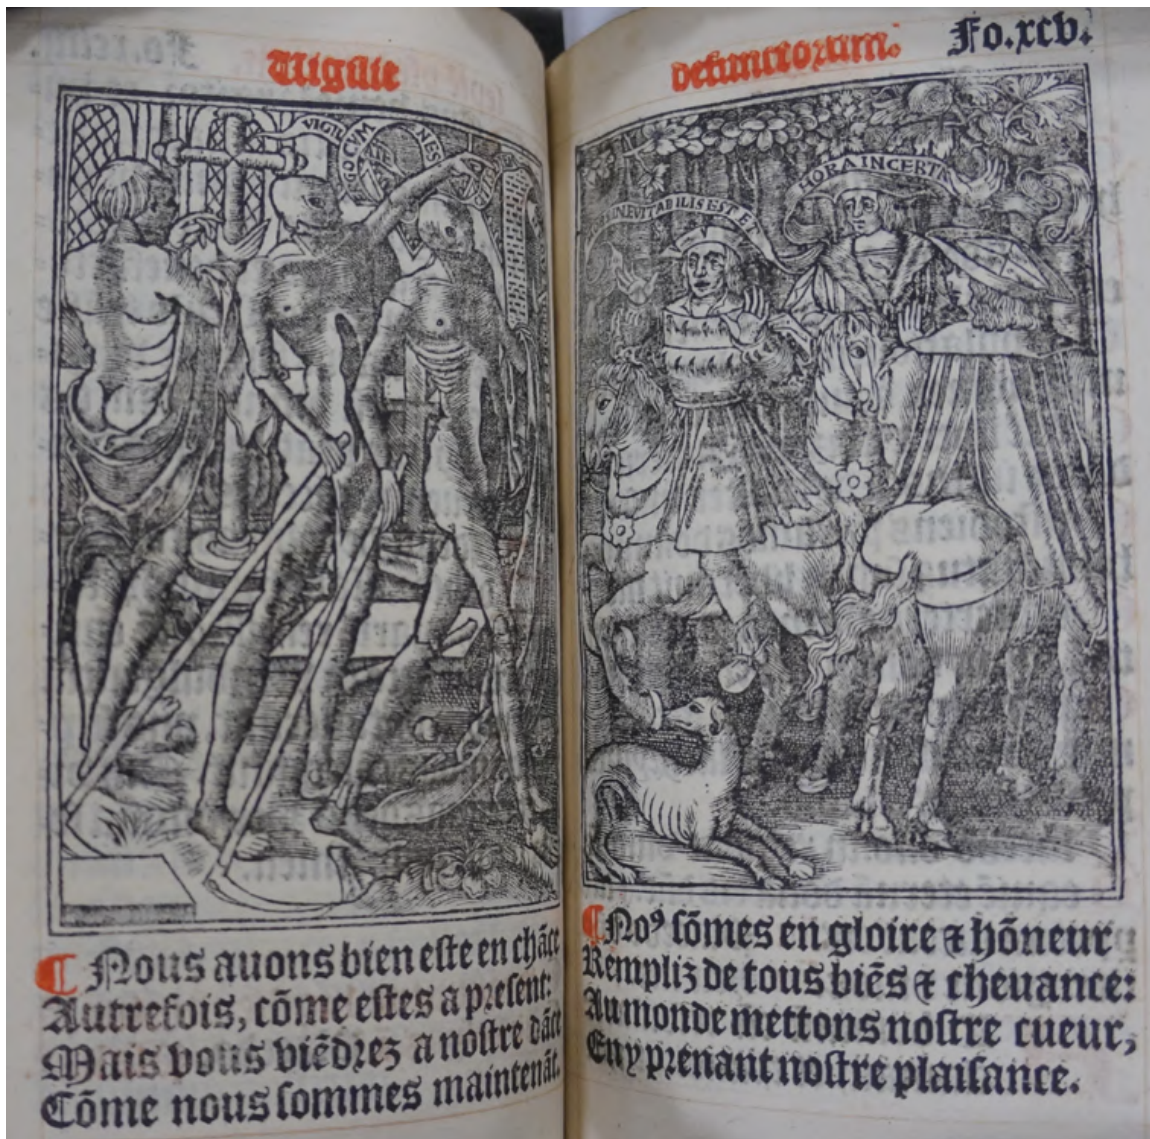 Vigilie
VIGIL
CVM
NES
¶ Nous auons bien este en chãce
Autrefois, cõme estes a present:
Mais vous viẽdrez a nostre dãce
Cõme nous sommes maintenãt.
defunctorum. Fo.xcv.
INEVITABILIS EST ET
HORA INCERTA
¶ Noꝰ sõmes en gloire ⁊ hõneur
Rempliz de tous biẽs ⁊ cheuance:
Au monde mettons nostre cueur,
En y prenant nostre plaisance.